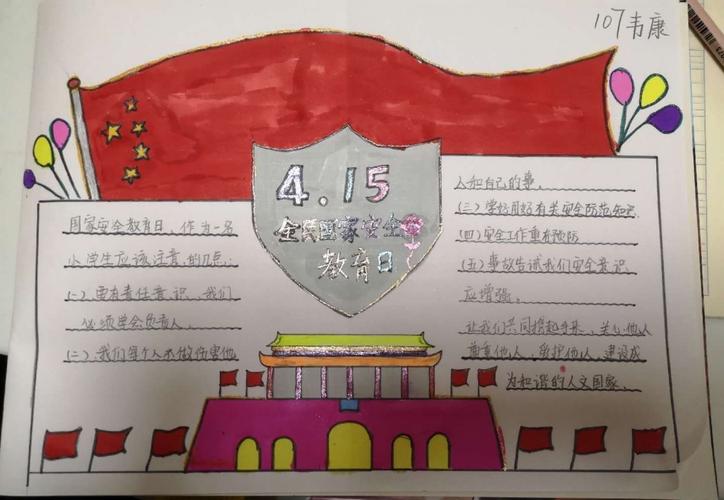 107韦康
4.15
全民国家安全
教育日
国家安全教育日，作为一名
小学生应该注意的几点：
(一)要有责任意识，我们
必须学会负责人，
(二)、我们每个人不做伤害他
人和自己的事。
(三)学好用好有关安全防范知识
(四)安全工作重在预防
(五)事故告诫我们安全意识
应增强。
让我们共同携起手来，关心他人
尊重他人，爱护他人，建设成
为和谐的人文国家。